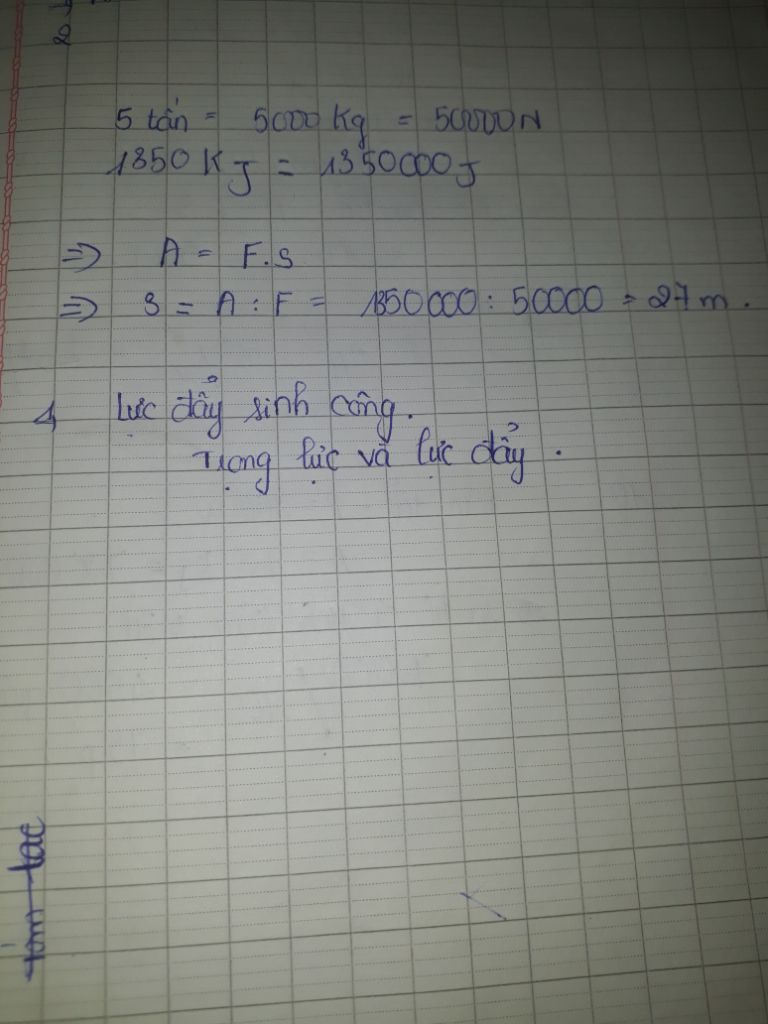 5 tấn = 5000 Kg = 50000N
1350 KJ = 1350000J
=> A = F.S
=> S = A : F = 1350000 : 50000 = 27 m.
4 Lực đẩy sinh công.
Trọng lực và lực đẩy.
tóm tắt